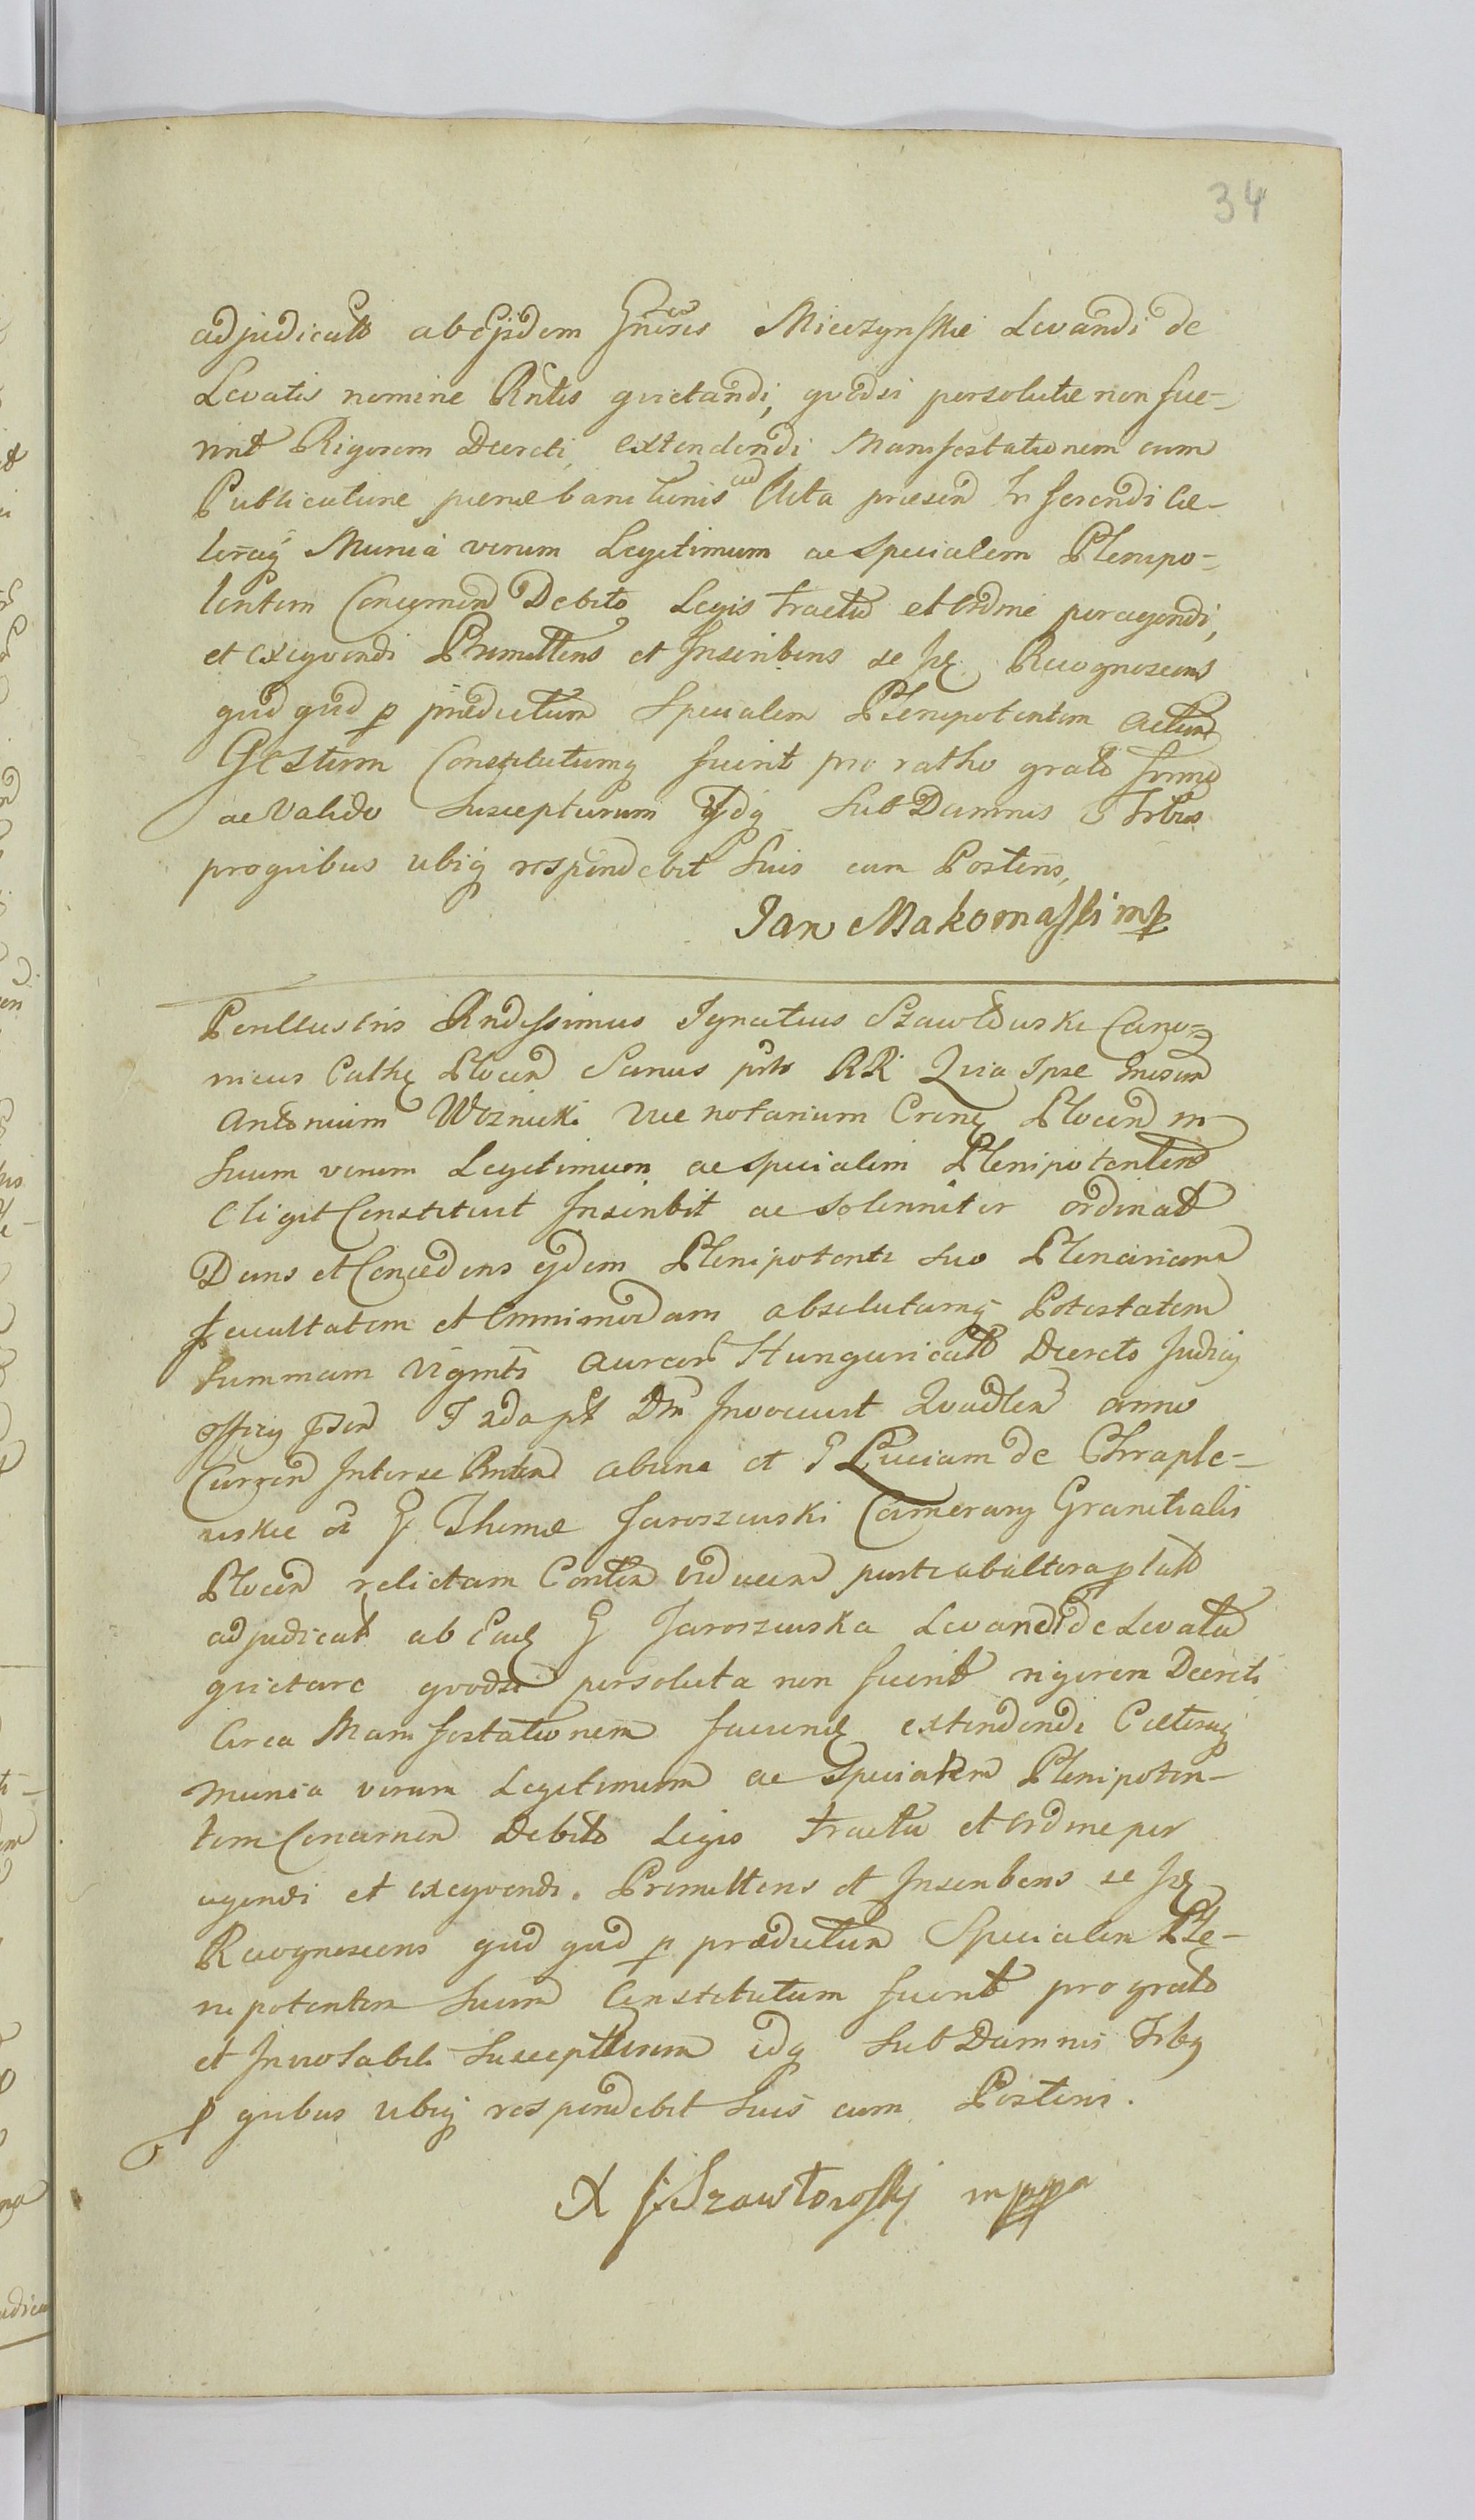 34
adjudicatt ab ejsdem Gnosis Mieczynskie Levandi de
Levatis nomine Rntis quietandi, quodsi persolutae non fue-
rint Rigorem Decreti, extendendi Manifestationem cum
Publicatione poenae banitionis ad Acta praesen Inferendi Cae-
teraq Munia verum Legitimum ac specialem Plenipo-
tentem Concernen Debito Legis tractu et ordine peragendi,
et exequendi Promittens et Inscribens se Recognoscens
qud qud p praedictum Specialem Plenipotentem actum
Gestum Constitutumq fuerit pro ratho grato firmo
ac valido Suscepturum Idq Sub Damnis Trbus
proquibus ubiq respondebit Suis cum Posteris,
Jan Makomaski mp
Perillustris Rndissimus Ignatius Szawłowski Cano=
nicus Cathe Plocen Sanus RR Quia Ipse Gnosum
Antonium Woznicki Vice notarium Plocen in
Suum verum Legitimum ac specialem Plenipotentem
Eligit Constituit Inscribit ac solenniter ordinat
Dans et Concedens ejdem Plenipotenti suo Plenariam
facultatem et Omnimodam absolutamq Potestatem
Summam Viginti Aureor Hungaricall Decreto Judicij
officij Invocavit anno
Curren Interse Rnten abuna et Luciam de Chraple-
wskie G Thomae Jaroszewski Camerarij Granitialis
Plocen relictam viduam
adjudicat ab G Jaroszewska Levandi de Levata
quietare quodsi persoluta non fuerit rigorem Decreti
Circa Manifestationem extendendi Caeteraq
munia verum Legitimum ac Specialem Plenipoten-
tem Concernen Debito Legis tractu et ordine per
agendi et exequendi. Promittens et Inscribens se
Recognoscens qud qud p praedictum Specialem Ple-
nipotentem Suum Constitutum fuerit pro grato
et Inviolabili Suscepturum idq Sub Damnis Trbq
p quibus ubiq respondebit Suis cum Posteris.
X J Szawłowskj mppa